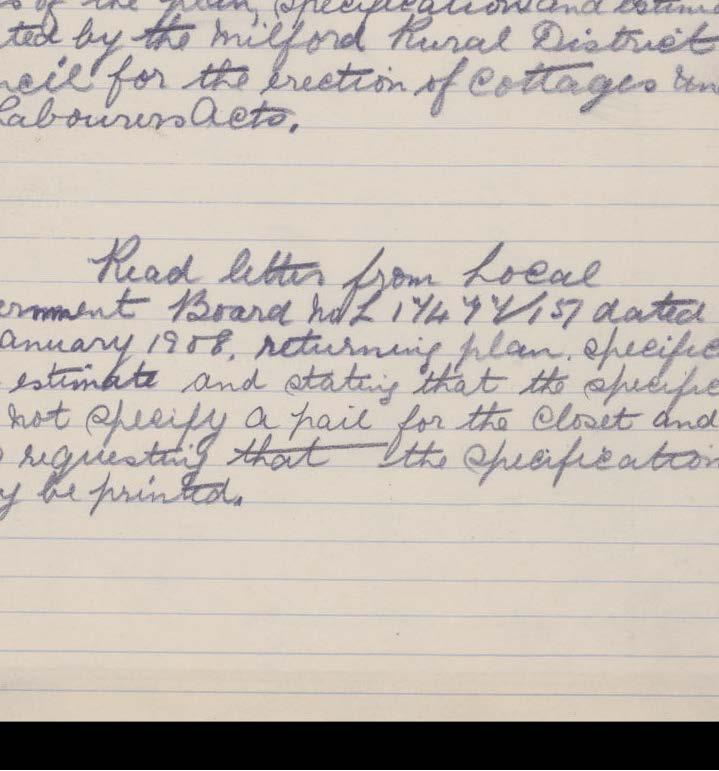 of the plan, specification and estim
ted by the Milford Rural District
ncil for the erection of Cottages un
Labourers Acts.
Read letter from Local
ernment Board No L dated
anuary 1908, returning plan, specific
estimate and stating that the specific
not specify a pail for the closet and
requesting that the specification
y be printed.